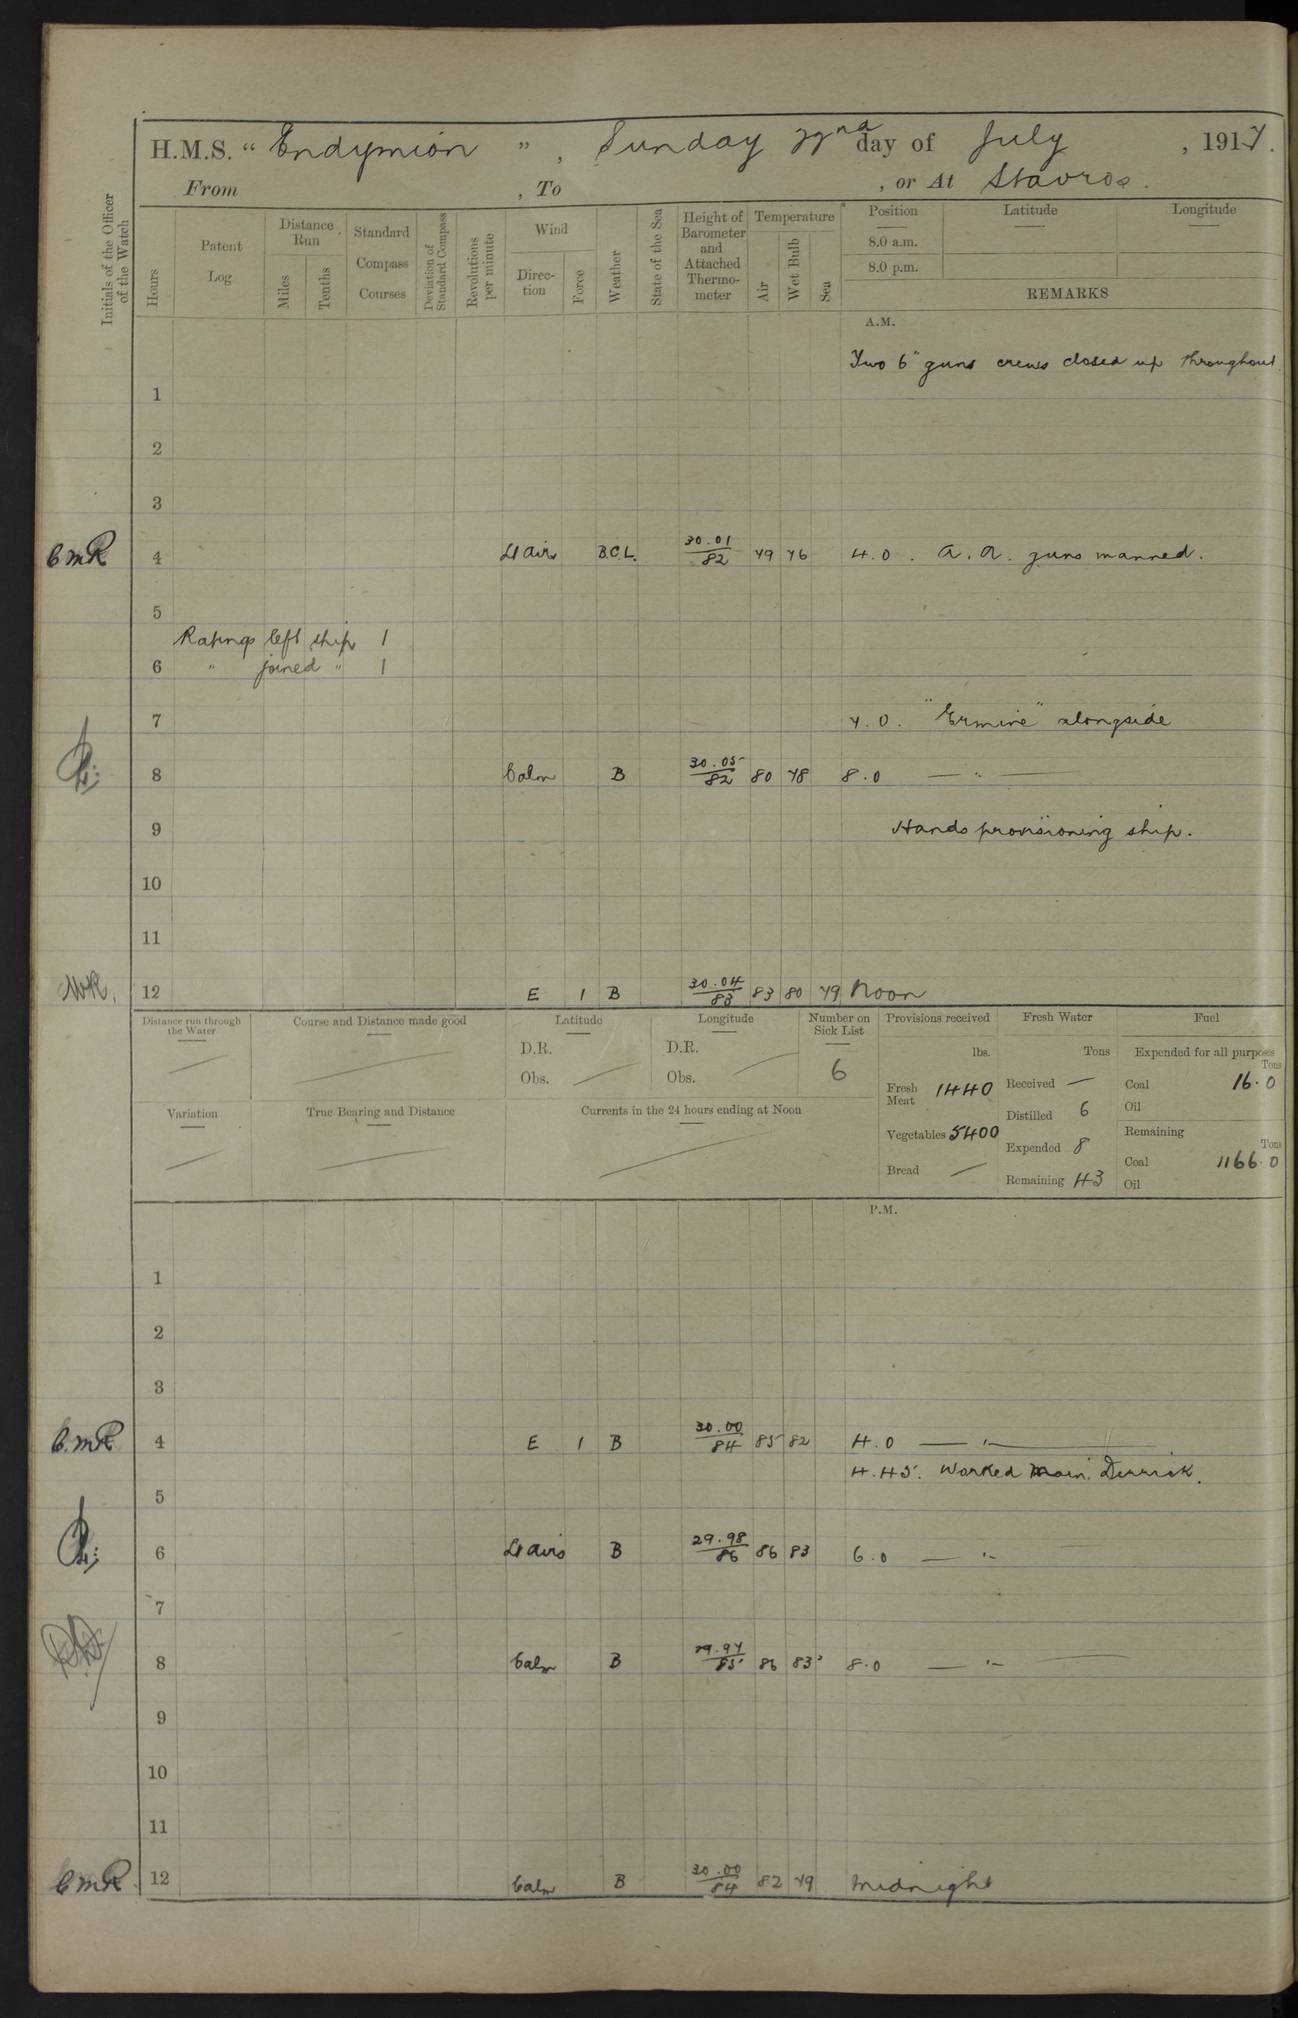 H.M.S. "Endymion", Sunday 22nd day of July, 1917.
From , To , or At Stavros.
Initials of the Officer of the Watch
Hours
Patent Log
Distance Run
Miles
Tenths
Standard Compass Courses
Deviation of Standard Compass
Revolutions per minute
Wind
Direc-tion
Force
Weather
State of the Sea
Height of Barometer and Attached Thermo-meter
Temperature
Air
Wet Bulb
Sea
Position
8.0 a.m.
8.0 p.m.
Latitude
Longitude
REMARKS
A.M.
Two 6" guns crews closed up throughout
1
2
3
CMR 4 Lt Air B.C.L. 30.01/82 79 76 4.0. A.A. guns manned.
5
Ratings left ship 1
6 " joined " 1
7 7.0. "Ermine" alongside
8 Calm B 30.05/82 80 78 8.0 — " —
9 Hands provisioning ship.
10
11
WR. 12 E 1 B 30.04/83 83 80 79 Noon
Distance run through the Water
Course and Distance made good
Latitude
D.R.
Obs.
Longitude
D.R.
Obs.
Number on Sick List
6
Provisions received
lbs.
Fresh Meat 1440
Vegetables 5400
Bread —
Fresh Water
Tons
Received —
Distilled 6
Expended 8
Remaining 43
Fuel
Expended for all purposes
Tons
Coal 16.0
Oil
Remaining
Tons
Coal 1166.0
Oil
Variation
True Bearing and Distance
Currents in the 24 hours ending at Noon
P.M.
1
2
3
C.MR 4 E 1 B 30.00/84 85 82 4.0 — " —
4.45. Worked Main Derrick.
5
6 Lt airs B 29.98/86 86 83 6.0 — " —
7
8 Calm B 29.97/85 86 83 8.0 — " —
9
10
11
CMR 12 Calm B 30.00/84 82 79 Midnight